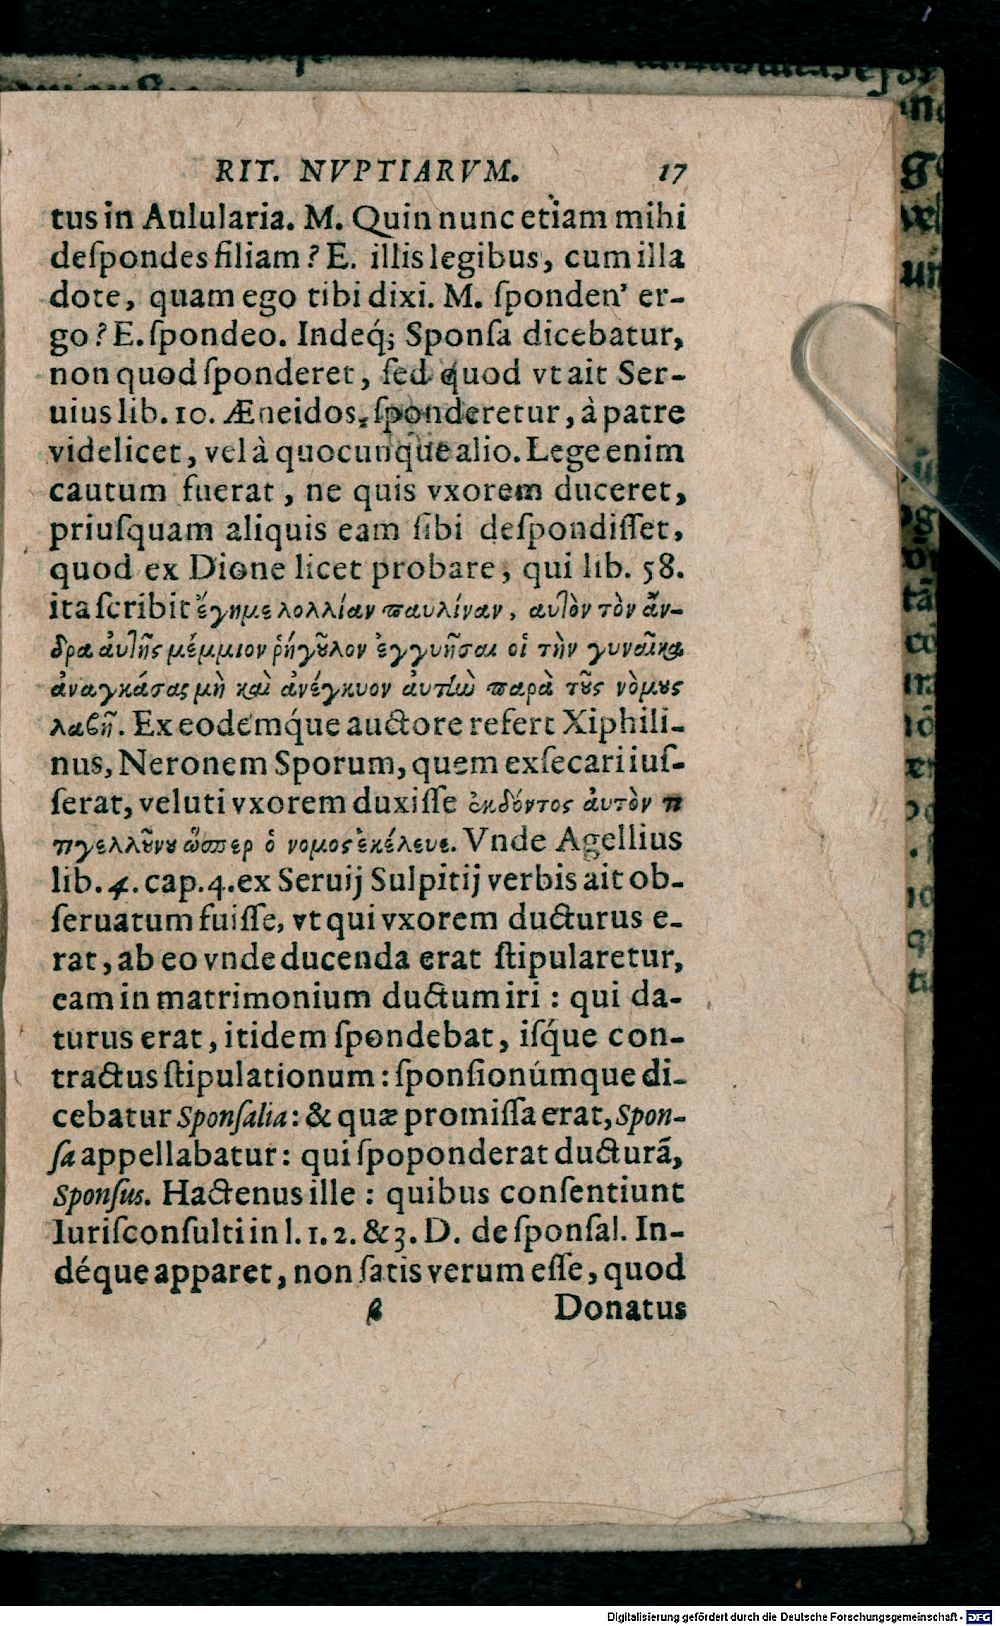 RIT. NVPTIARVM. 17
tus in Aulularia. M. Quin nunc etiam mihi
deſpondes filiam? E. illis legibus, cum illa
dote, quam ego tibi dixi. M. ſponden' er-
go? E. ſpondeo. Indeq́; Sponſa dicebatur,
non quod ſponderet, ſed quod vt ait Ser-
uius lib. 10. Æneidos, ſponderetur, à patre
videlicet, vel à quocunque alio. Lege enim
cautum fuerat, ne quis vxorem duceret,
priuſquam aliquis eam ſibi deſpondiſſet,
quod ex Dione licet probare, qui lib. 58.
ita ſcribit ἔγημε λολλίαν παυλίναν, αυτὸν τὸν ἄν-
δρα ἀυτῆς μέμμιον ῥήγουλον ἐγγυῆσαι οἱ τὴν γυναῖκα
ἀναγκάσας μὴ καὶ ἀνέγκυον ἀυτὼ παρὰ τοῦς νὸμους
λαβῆ. Ex eodemq́ue auctore refert Xiphili-
nus, Neronem Sporum, quem exſecari iuſ-
ſerat, veluti vxorem duxiſſe ἐκδόντος ἀυτὸν π
πγελλοῦνου ὥσπερ ὁ νομος ἐκέλευε. Vnde Agellius
lib. 4. cap. 4. ex Seruij Sulpitij verbis ait ob-
ſeruatum fuiſſe, vt qui vxorem ducturus e-
rat, ab eo vnde ducenda erat ſtipularetur,
eam in matrimonium ductum iri: qui da-
turus erat, itidem ſpondebat, iſq́ue con-
tractus ſtipulationum: ſponſionúmque di-
cebatur Sponſalia: & quæ promiſſa erat, Spon-
ſa appellabatur: qui ſpoponderat ducturã,
Sponſus. Hactenus ille: quibus conſentiunt
Iuriſconſulti in l. 1. 2. & 3. D. de ſponſal. In-
déque apparet, non ſatis verum eſſe, quod
Donatus
Digitalisierung gefördert durch die Deutsche Forschungsgemeinschaft - DFG